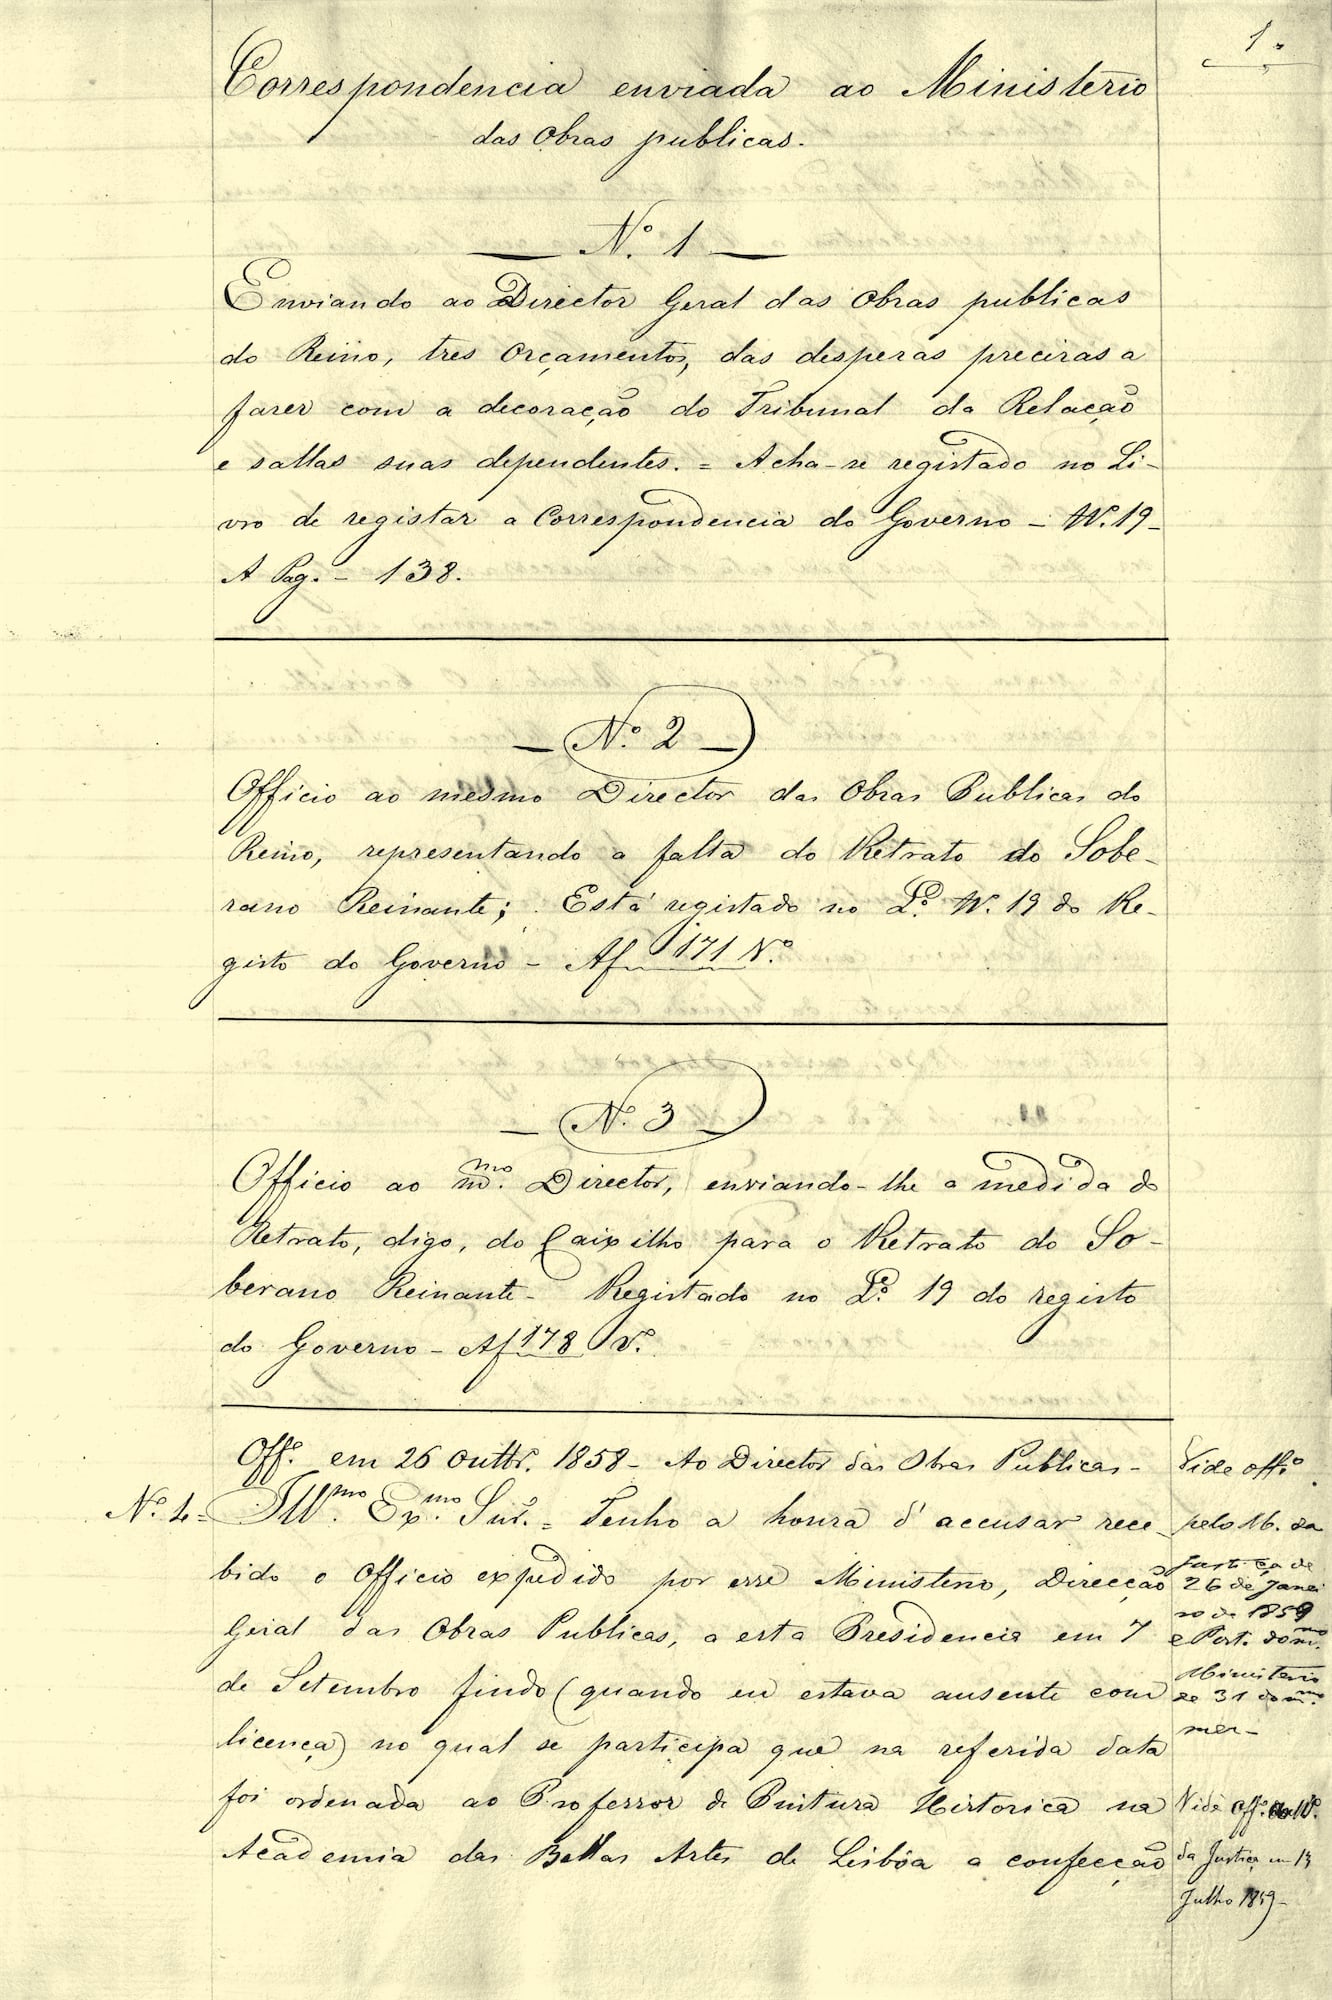 1.
Correspondencia enviada ao Ministerio
das Obras publicas.
N.º 1
Enviando ao Director Geral das Obras publicas
do Reino, tres Orçamentos, das despezas precizas a
fazer com a decoração do Tribunal da Relação
e sallas suas dependentes. = Acha-se registado no Li-
vro de registar a Correspondencia do Governo - N. 19 -
A Pag. - 138.
N.º 2
Officio ao mesmo Director das Obras Publicas do
Reino, representando a falta do Retrato do Sobe-
rano Reinante; Está registado no L.º N. 19 do Re-
gisto do Governo - Af 171 V.º
N.º 3
Officio ao m.mo Director, enviando-lhe a medida do
Retrato, digo, do Caixilho para o Retrato do So-
berano Reinante - Registado no L.º 19 do registo
do Governo - Af 178 V.º
Off.º em 26 Outbr.º 1858 - Ao Director das Obras Publicas -
N.º 4 = Ill.mo Ex.mo Snr. = Tenho a honra d'accusar rece-
bido o Officio expedido por esse Ministerio, Direcção
Geral das Obras Publicas, a esta Presidencia em 7
de Setembro findo (quando eu estava ausente com
licença) no qual se participa que na referida data
foi ordenada ao Professor de Pintura Historica na
Academia das Bellas Artes de Lisbôa a confecção
Vide off.º
pelo M. da
Justiça de
26 de Janei
ro de 1859
e Port. do m.mo
Ministerio
de 31 do m.mo
mez -
Vide Off.º ao M.º
da Justiça em 13
Julho 1859 -